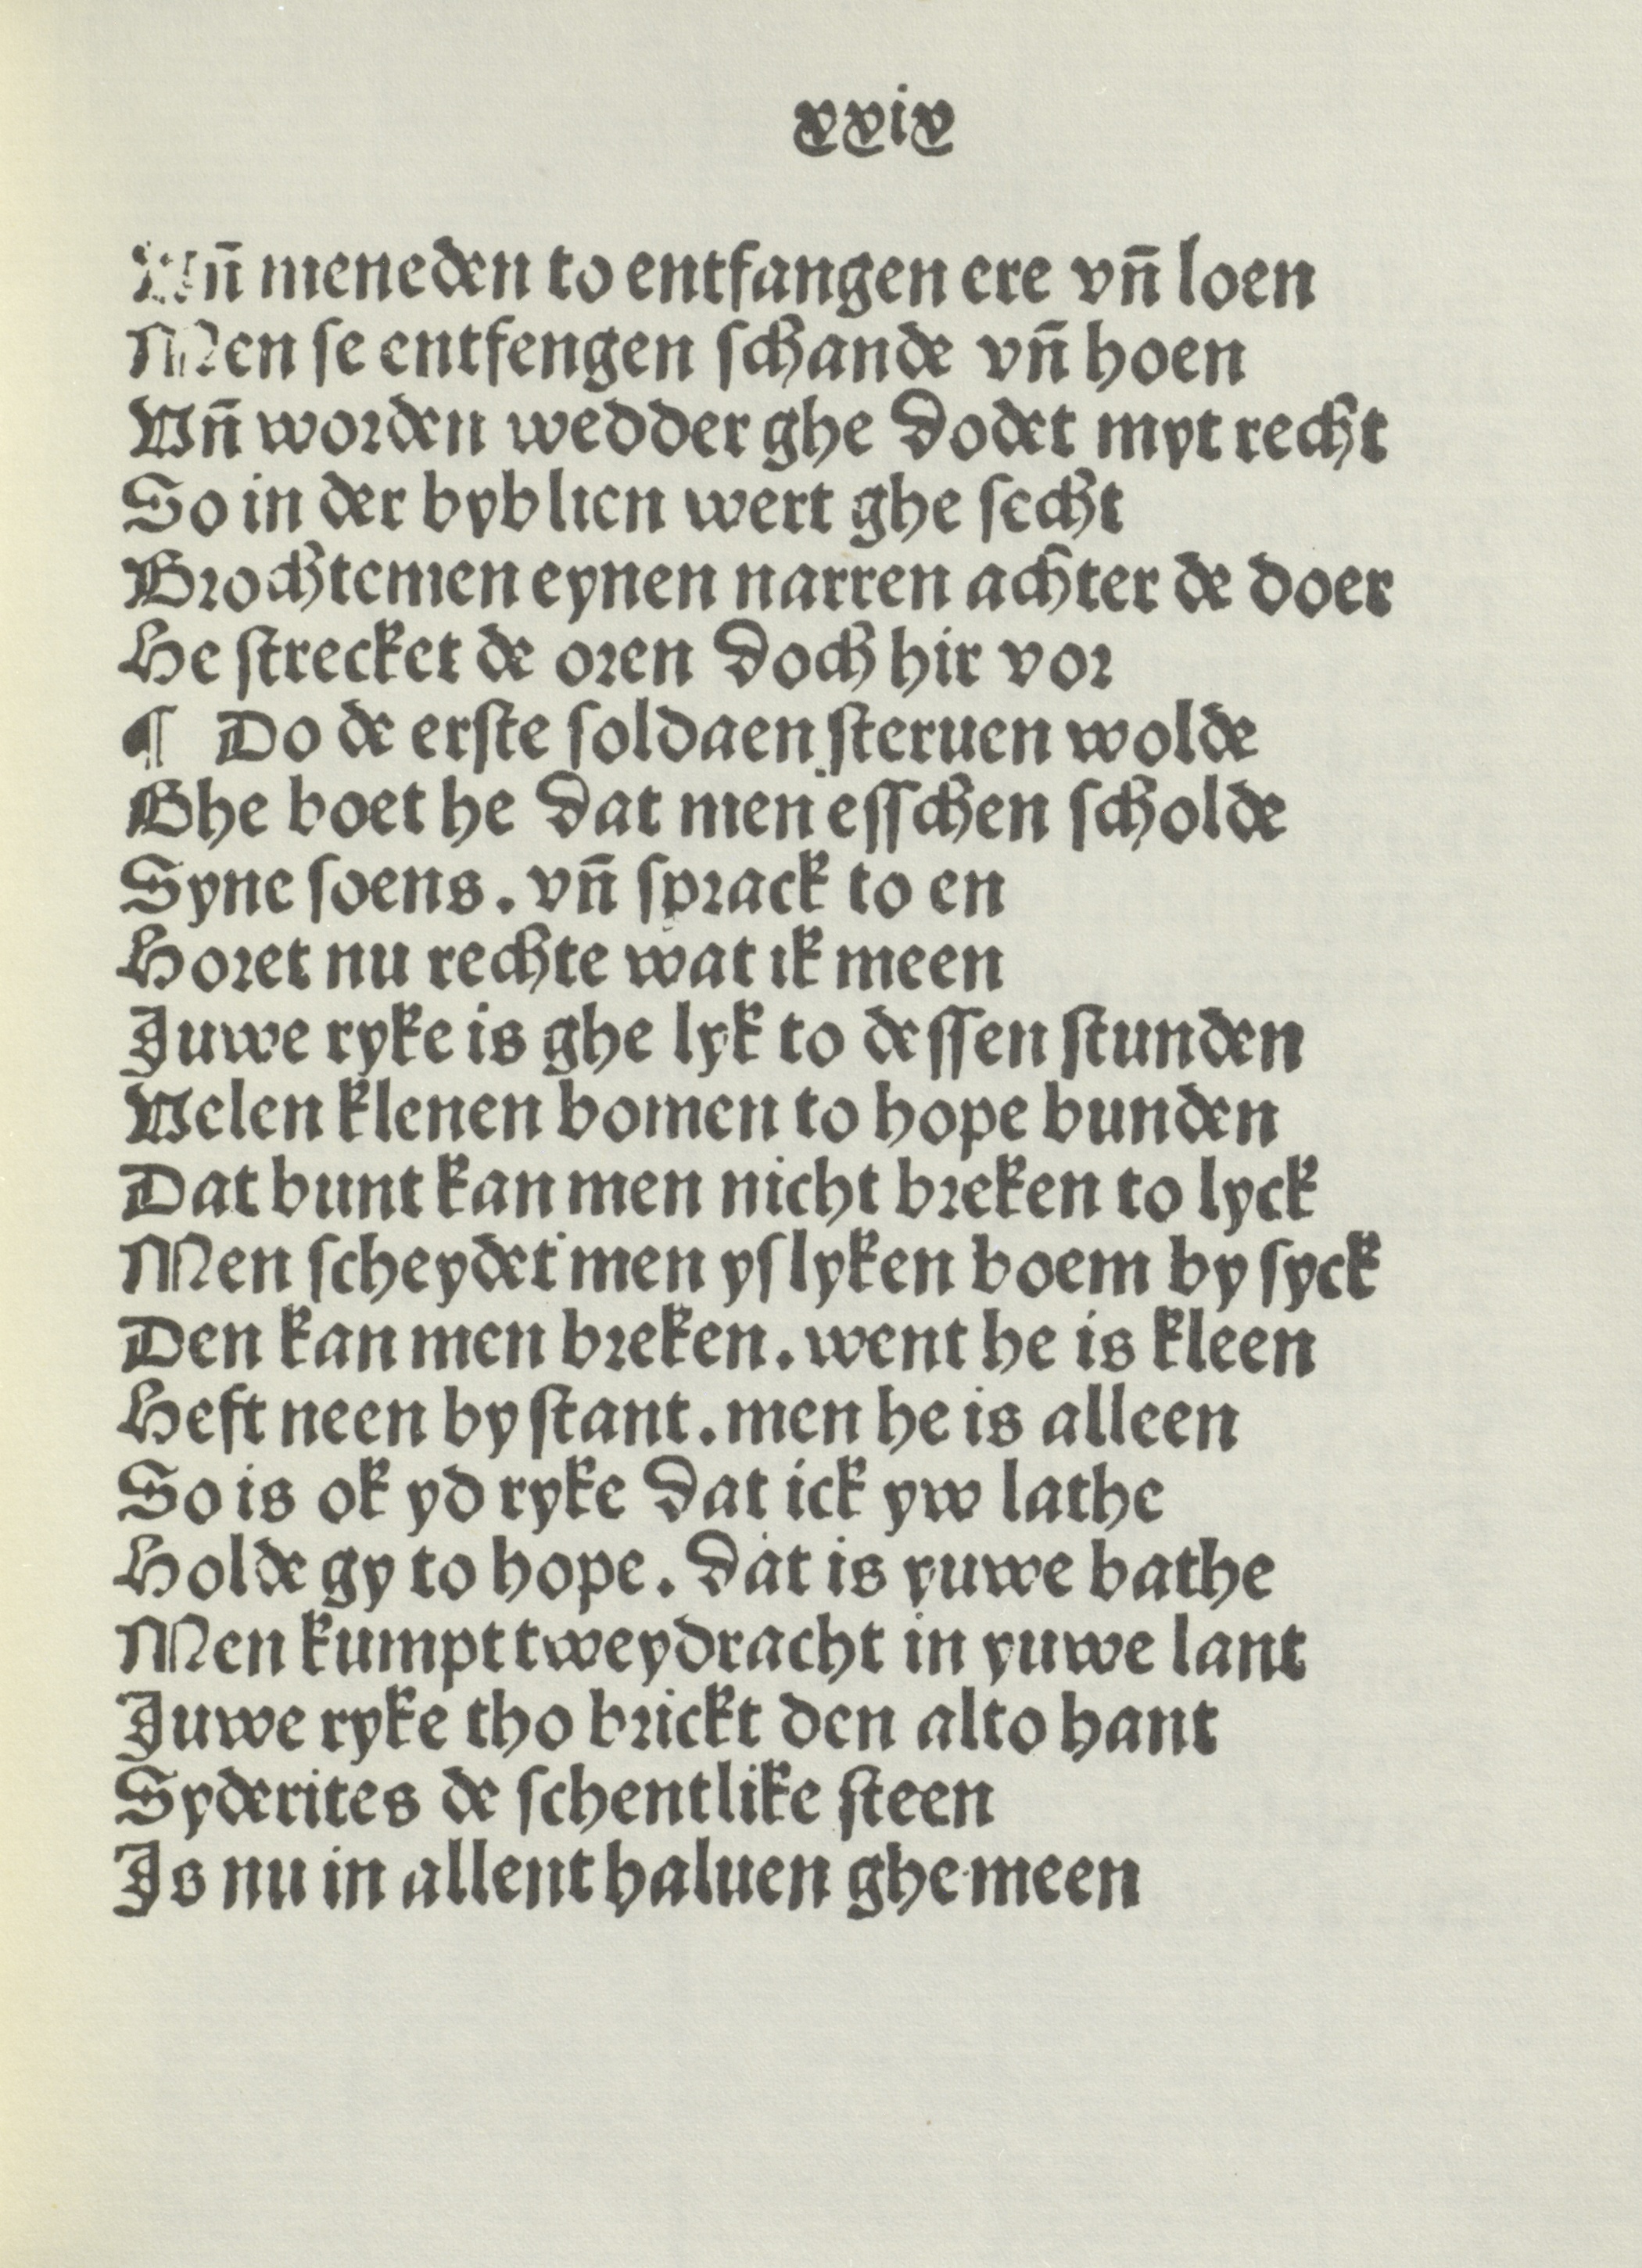 xxix
Vn̄ meneden to entfangen ere vn̄ loen
Men se entfengen schande vn̄ hoen
Vn̄ worden wedder ghe dodet myt recht
So in der byblien wert ghe secht
Brochtemen eynen narren achter de doer
He strecket de oren doch hir vor
¶ Do de erste soldaen steruen wolde
Ghe boet he dat men esschen scholde
Syne soens. vn̄ sprack to en
Horet nu rechte wat ik meen
Juwe ryke is ghe lyk to dessen stunden
Velen klenen bomen to hope bunden
Dat bunt kan men nicht breken to lyck
Men scheydet men yslyken boem by syck
Den kan men breken. went he is kleen
Heft neen by stant. men he is alleen
So is ok yd ryke dat ick yw lathe
Holde gy to hope. dat is yuwe bathe
Men kumpt tweydracht in yuwe lant
Juwe ryke tho brickt den alto hant
Syderites de schentlike steen
Is nu in allent haluen ghe meen